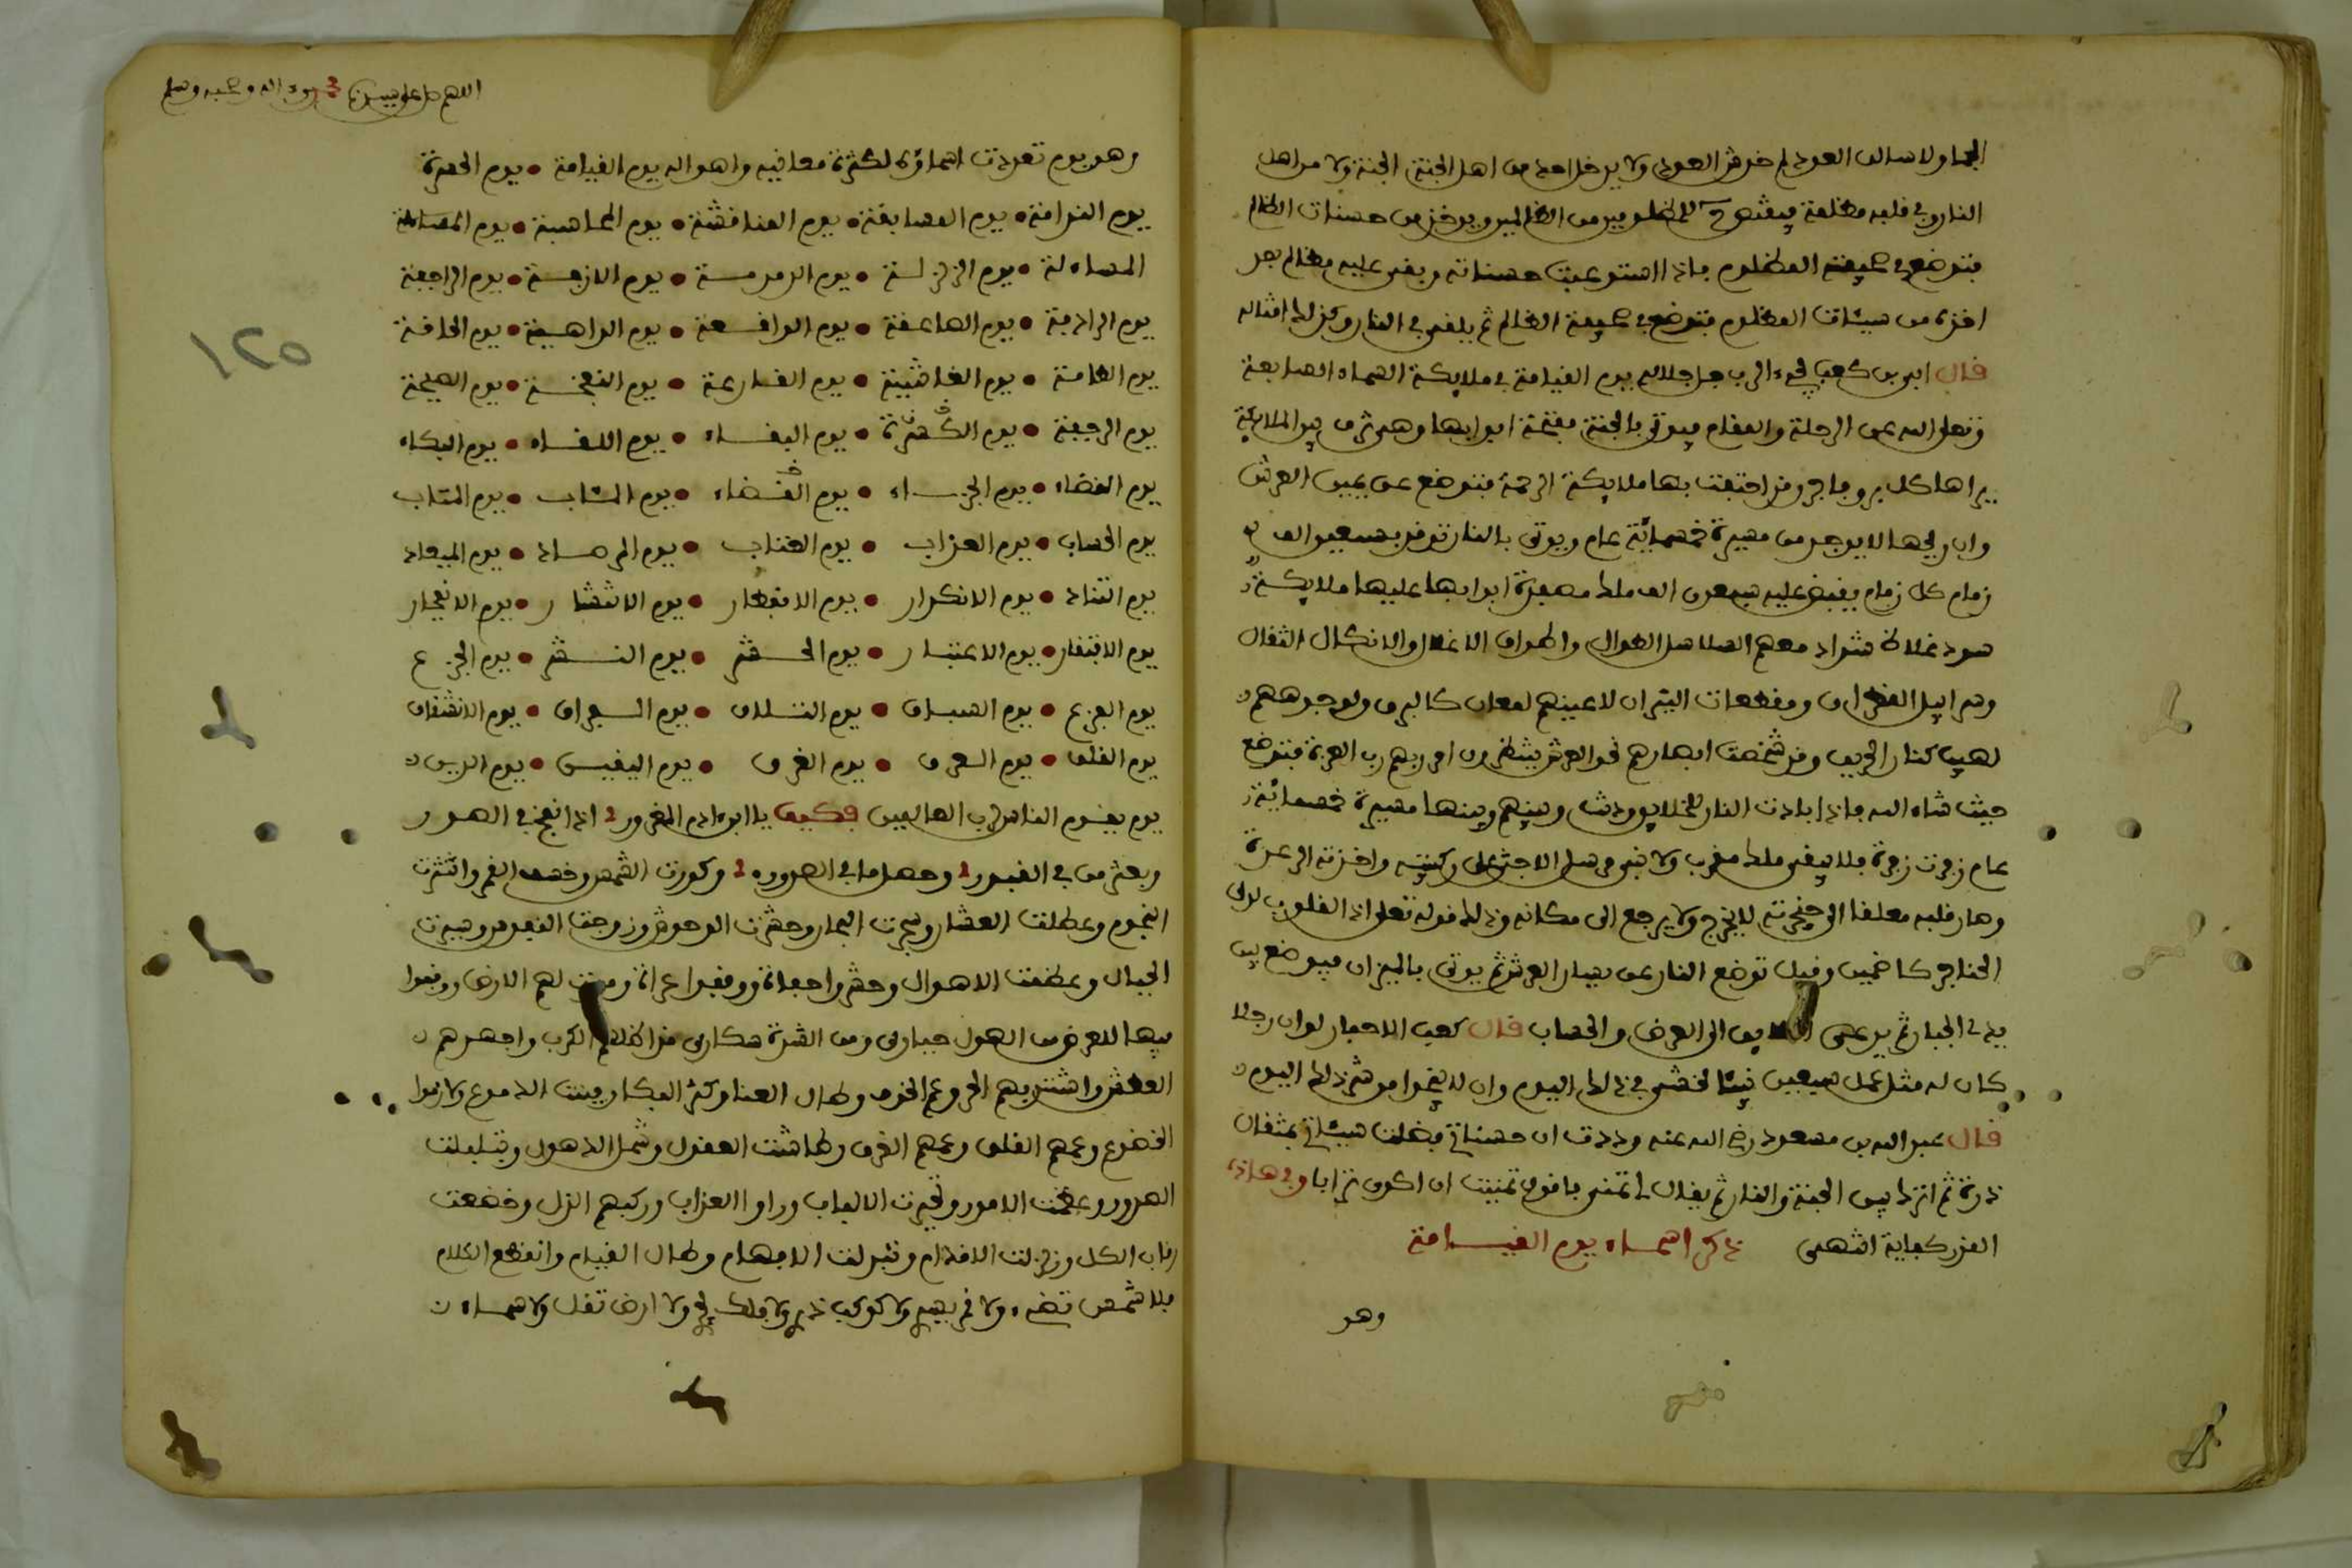 الجما ولاسالن العود لم خدش العود ولا يدخل احد من اهل الجنة الجنة ولا من اهل
النار وفي قلبه مظلمة فيقتص للمظلومين من الظالمين ويوخذ من حسنات الظالم
فتوضع في صحيفة المظلوم فاذا استوعبت حسناته وبقى عليه مظالم بعد
اخذ من سيئات المظلوم فتوضع في صحيفة الظالم ثم يلقى في النار وكذلك امثاله
قال ابي بن كعب يجيء الرب جل جلاله يوم القيامة في ملايكة السماء السابعة
وتعالى الله عن الرحلة والمقام فيوتى بالجنة مفتحة ابوابها وهي تزف بين الملايكة
يراها كل بر وفاجر وقد احتفت بها ملايكة الرحمة فتوضع عن يمين العرش
وان ريحها لا يوجد من مسيرة خمسمائة عام ويوتى بالنار تقاد بسبعين الف
زمام كل زمام يقبض عليه سبعون الف ملك مصفدة ابوابها عليها ملايكة
سود غلاظ شداد معهم السلاسل الطوال واطواق الاغلال والانكال الثقال
وسرابيل القطران ومقطعات النيران لاعينهم لمعان كالبرق ولوجوههم
لهيب كنار الحريق وقد شخصت ابصارهم نحو العرش ينتظرون امر ربهم رب العزة فتوضع
حيث شاء الله فاذا بادت النار للخلايق ودنت وبينهم وبينها مسيرة خمسمائة
عام زفرت زفرة فلا يبقى ملك مقرب ولا نبي مرسل الا جثى على ركبتيه واخذته الرعدة
وصار قلبه معلقا الى حنجرته لا يخرج ولا يرجع الى مكانه وذلك قوله تعلى اذ القلوب لدى
الحناجر كاظمين وقيل توضع النار عن يسار العرش ثم يوتى بالميزان فيوضع بين
يدي الجبار ثم يدعى الخلايق الى العرض والحساب قال كعب الاحبار لو ان رجلا
كان له مثل عمل سبعين نبيئا لخشي في ذلك اليوم وان لا ينجوا من شر ذلك اليوم
قال عبد الله بن مسعود رضي الله عنه وددت ان حسناتي فضلت سيئاتي بمثقال
ذرة ثم اترك بين الجنة والنار ثم يقال لي تمنى فاقول تمنيت ان اكون ترابا وفي هاذا
القدر كفاية انتهى ذكر اسماء يوم القيامة
وهو
اللهم صل على سيدنا محمد وعلى اله وصحبه وسلم
وهو يوم تعددت اسماؤه لكثرة معانيه واهواله يوم القيامة • يوم الحسرة
يوم الندامة • يوم المسابقة • يوم المناقشة • يوم المحاسبة • يوم المسائلة
المساءلة • يوم الزلزلة • يوم الدمدمة • يوم الازفة • يوم الراجفة
يوم الرادفة • يوم الصاعقة • يوم الواقعة • يوم الداهية • يوم الحاقة
يوم الطامة • يوم الغاشية • يوم القارعة • يوم النفخة • يوم الصيحة
يوم الرجفة • يوم • يوم البقاء • يوم اللقاء • يوم البكاء
يوم القضاء • يوم الجزاء • يوم القضاء • يوم المئاب • يوم المتاب
يوم الحساب • يوم العذاب • يوم العقاب • يوم المرصاد • يوم الميعاد
يوم التناد • يوم الانكدار • يوم الانفطار • يوم الانتشار • يوم الانفجار
يوم الافتقار • يوم الاعتبار • يوم الحشر • يوم النشر • يوم الجزع
يوم الفزع • يوم السباق • يوم التلاق • يوم الفراق • يوم الانشقاق
يوم القلق • يوم العرق • يوم الغرق • يوم اليقين • يوم الدين
يوم يقوم الناس لرب العالمين فكيف يا ابن ادم المغرور اذا نفخ في الصور
وبعثر من في القبور وحصل ما في الصدور وكورت الشمس وخسف القمر وانتثرت
النجوم وعطلت العشار وسجرت البحار وحشرت الوحوش وزوجت النفوس وسيرت
الجبال وعظمت الاهوال وحشروا حفاة ووقفوا عراة ومدت لهم الارض ووقفوا
فيها للعرض من الهول حيارى ومن الشدة سكارى قد اظلهم الكرب واجهدهم
العطش واشتد بهم الحر وعم الخوف وطال العنا وكثر البكا وفنيت الدموع ولازموا
الخضوع وعمهم القلق وعمهم الغرق وطاشت العقول وشمل الذهول وتبلبلت
الصدور وعظمت الامور وتحيرت الالباب وراوا العذاب وركبهم الذل وخضعت
رقاب الكل وزلزلت الاقدام وتبدلت الافهام وطال القيام وانقطع الكلام
فلا شمس تضيء ولا قمر يسير ولا كوكب دري ولا فلك يجري ولا ارض تقل ولا سماء
١٢٥